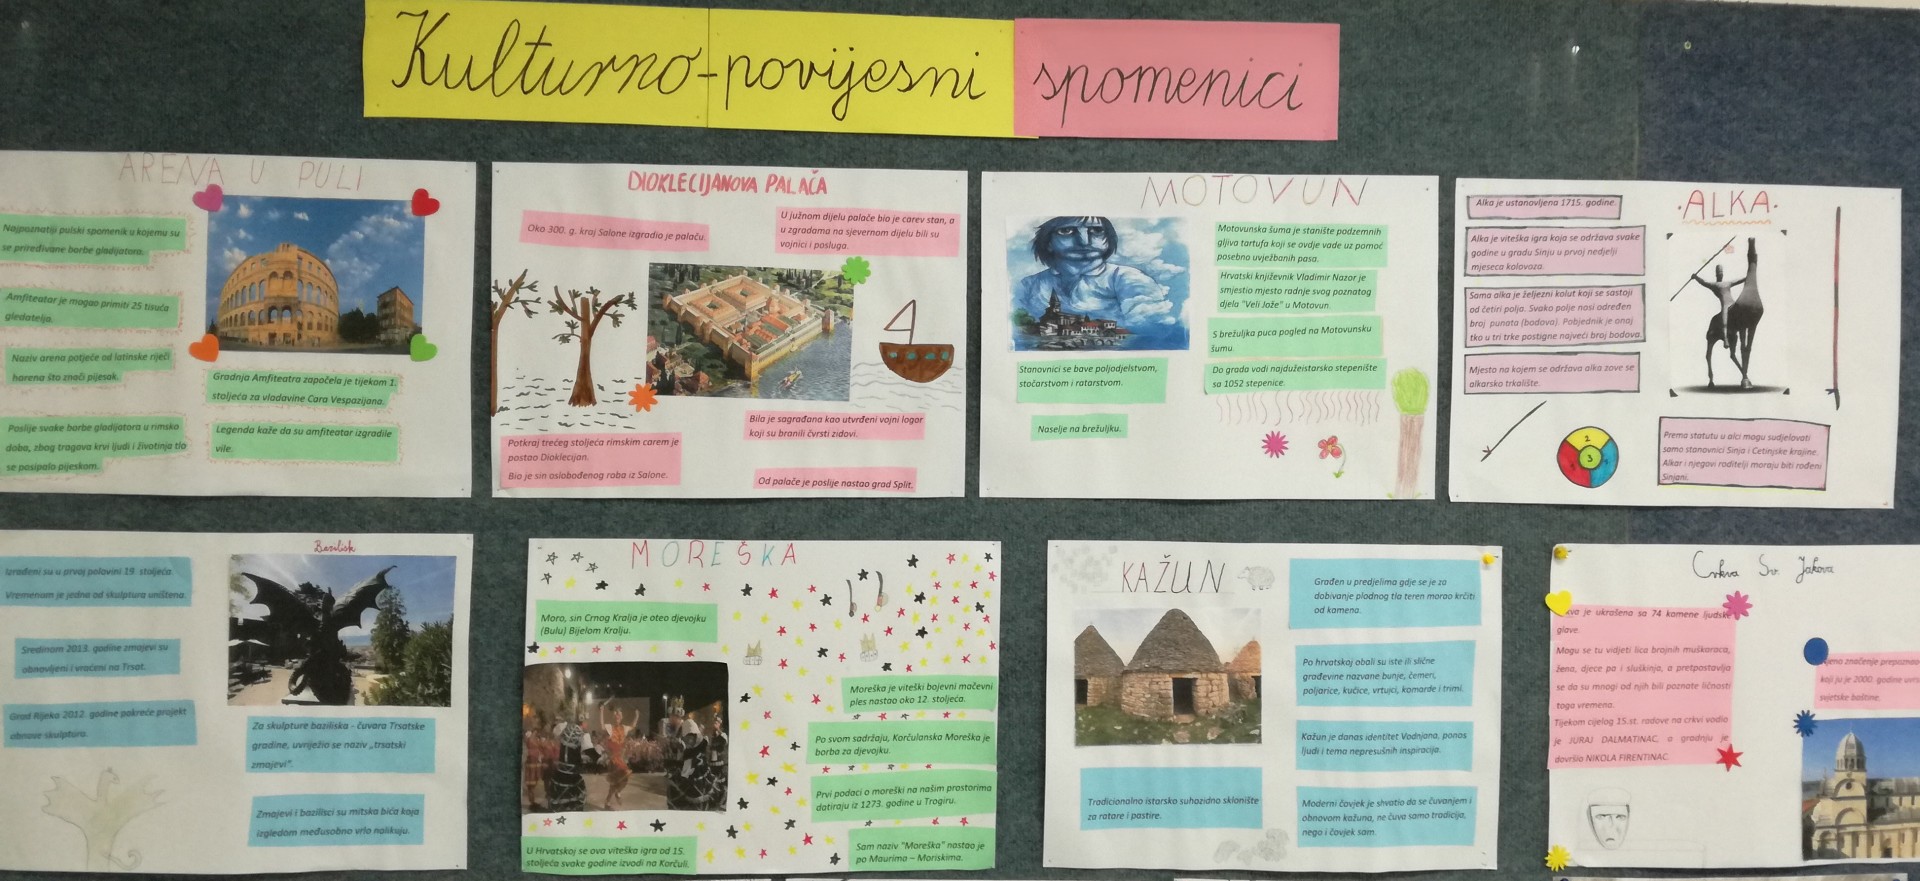 Kulturno-povijesni spomenici
ARENA U PULI
Najpoznatiji pulski spomenik u kojemu su
se priređivane borbe gladijatora.
Amfiteatar je mogao primiti 25 tisuća
gledatelja.
Naziv arena potječe od latinske riječi
horena što znači pijesak.
Poslije svake borbe gladijatora u rimsko
doba, zbog tragova krvi ljudi i životinja tlo
se posipalo pijeskom.
Gradnja Amfiteatra započela je tijekom 1.
stoljeća za vladavine Cara Vespazijana.
Legenda kaže da su amfiteatar izgradile
vile.
DIOKLECIJANOVA PALAČA
Oko 300. g. kraj Salone izgradio je palaču.
U južnom dijelu palače bio je carev stan, a
u zgradama na sjevernom dijelu bili su
vojnici i posluga.
Potkraj trećeg stoljeća rimskim carem je
postao Dioklecijan.
Bio je sin oslobođenog roba iz Salone.
Bila je sagrađana kao utvrđeni vojni logor
koji su branili čvrsti zidovi.
Od palače je poslije nastao grad Split.
MOTOVUN
Motovunska šuma je stanište podzemnih
gljiva tartufa koji se ovdje vade uz pomoć
posebno uvježbanih pasa.
Hrvatski književnik Vladimir Nazor je
smjestio mjesto radnje svog poznatog
djela "Veli Jože" u Motovun.
S brežuljka puca pogled na Motovunsku
šumu.
Do grada vodi najdužeistarsko stepenište
sa 1052 stepenice.
Stanovnici se bave poljodjelstvom,
stočarstvom i ratarstvom.
Naselje na brežuljku.
ALKA
Alka je ustanovljena 1715. godine.
Alka je viteška igra koja se održava svake
godine u gradu Sinju u prvoj nedjelji
mjeseca kolovoza.
Sama alka je željezni kolut koji se sastoji
od četiri polja. Svako polje nosi određen
broj punata (bodova). Pobjednik je onaj
tko u tri trke postigne najveći broj bodova.
Mjesto na kojem se održava alka zove se
alkarsko trkalište.
2
3
Prema statutu u alci mogu sudjelovati
samo stanovnici Sinja i Cetinjske krajine.
Alkar i njegovi roditelji moraju biti rođeni
Sinjani.
Bazilisk
Izrađeni su u prvoj polovini 19. stoljeća.
Vremenom je jedna od skulptura uništena.
Sredinom 2013. godine zmajevi su
obnovljeni i vraćeni na Trsat.
Grad Rijeka 2012. godine pokreće projekt
obnove skulptura.
Za skulpture baziliska - čuvara Trsatske
gradine, uvriježio se naziv „trsatski
zmajevi".
Zmajevi i bazilisci su mitska bića koja
izgledom međusobno vrlo nalikuju.
MOREŠKA
Moro, sin Crnog Kralja je oteo djevojku
(Bulu) Bijelom Kralju.
Moreška je viteški bojevni mačevni
ples nastao oko 12. stoljeća.
Po svom sadržaju, Korčulanska Moreška je
borba za djevojku.
Prvi podaci o moreški na našim prostorima
datiraju iz 1273. godine u Trogiru.
U Hrvatskoj se ova viteška igra od 15.
stoljeća svake godine izvodi na Korčuli.
Sam naziv "Moreška" nastao je
po Maurima – Moriskima.
KAŽUN
Građen u predjelima gdje se je za
dobivanje plodnog tla teren morao krčiti
od kamena.
Po hrvatskoj obali su iste ili slične
građevine nazvane bunje, čemeri,
poljarice, kućice, vrtujci, komarde i trimi.
Kažun je danas identitet Vodnjana, ponos
ljudi i tema nepresušnih inspiracija.
Tradicionalno istarsko suhozidno sklonište
za ratare i pastire.
Moderni čovjek je shvatio da se čuvanjem i
obnovom kažuna, ne čuva samo tradicija,
nego i čovjek sam.
Crkva Sv. Jakova
je ukrašena sa 74 kamene ljudske
glave.
Mogu se tu vidjeti lica brojnih muškaraca,
žena, djece pa i sluškinja, a pretpostavlja
se da su mnogi od njih bili poznate ličnosti
toga vremena.
Tijekom cijelog 15.st. radove na crkvi vodio
je JURAJ DALMATINAC, a gradnju je
dovršio NIKOLA FIRENTINAC.
značenje
koji ju je 2000. godine
svjetske baštine.